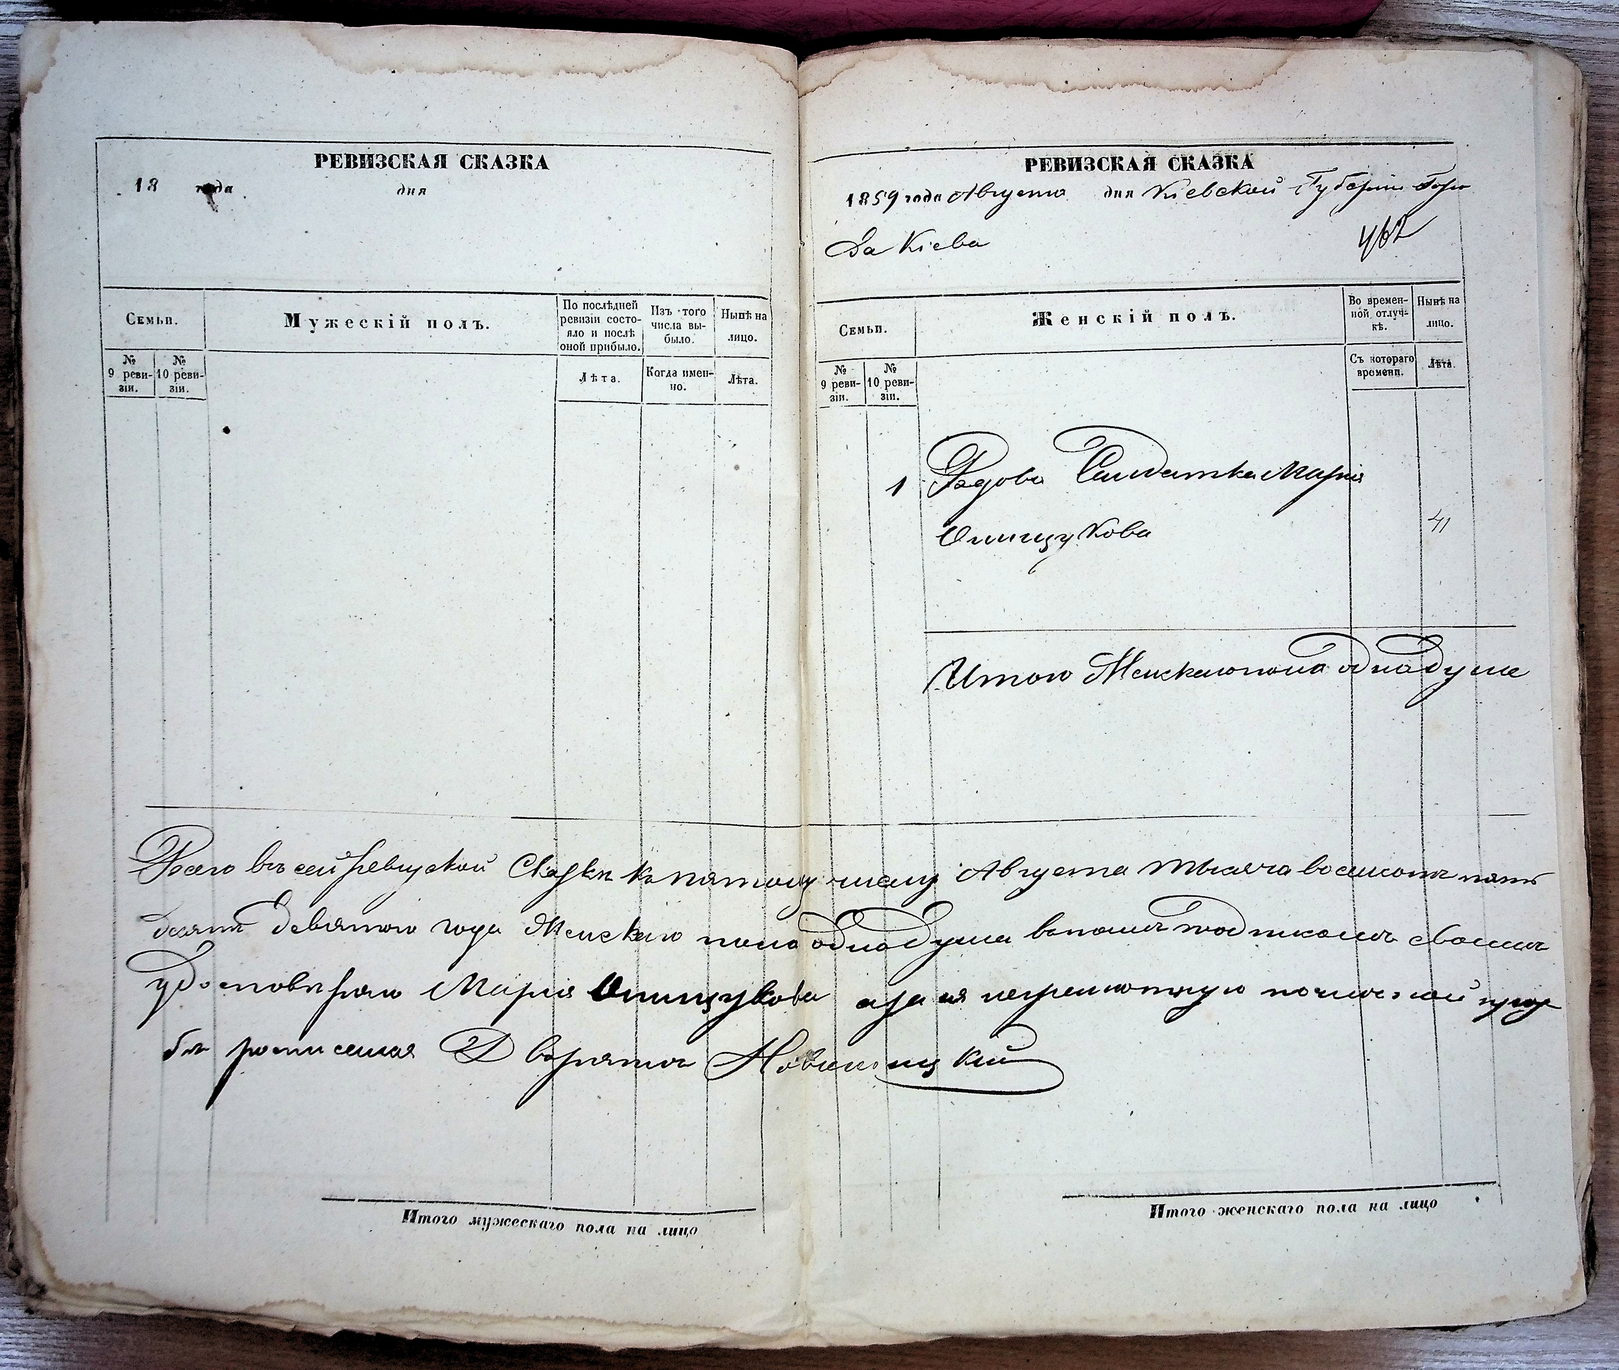 РЕВИЗСКАЯ СКАЗКА
18 года дня
Семьи.
Мужескій полъ.
По послѣдней ревизіи состояло и послѣ оной прибыло.
Изъ того числа выбыло.
Нынѣ на лицо.
№ 9 ревизіи.
№ 10 ревизіи.
Лѣта.
Когда именно.
Лѣта.
РЕВИЗСКАЯ СКАЗКА
1859 года Августа дня Кіевской Губерніи Горо
да Кіева
462
Семьи.
Женскій полъ.
Во временной отлучкѣ.
Нынѣ на лицо.
№ 9 ревизіи.
№ 10 ревизіи.
Съ котораго времени.
Лѣта.
1 Вдова Солдатка Марія
Онищукова 41
Итого Женскаго пола одна душа
Всего въ сей ревизской Сказки къ пятому числу Августа тысяча восемсотъ пять
десятъ девятого года Женского пола одна душа въ томъ подписомъ своимъ
удостовѣряю Марія Онищукова а за ея неграмотную по личной прозь
бѣ росписался Дворянинъ
Итого мужескаго пола на лицо
Итого женскаго пола на лицо